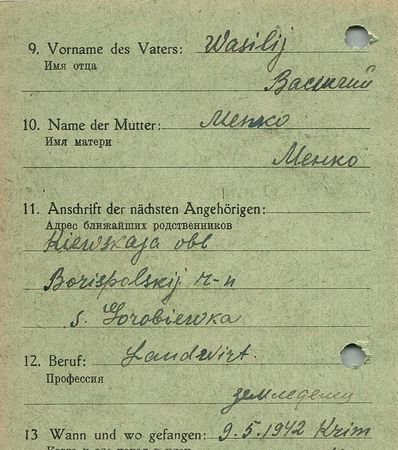 9. Vorname des Vaters: Wasilij
Имя отца
Василий
10. Name der Mutter: Менко
Имя матери
Менко
11. Anschrift der nächsten Angehörigen:
Адрес ближайших родственников
Kiewskaja obl
Borispolskij r-n
s. Gorobiewka
12. Beruf: Landwirt.
Профессия
земледелец
13 Wann und wo gefangen: 9.5.1942 Krim